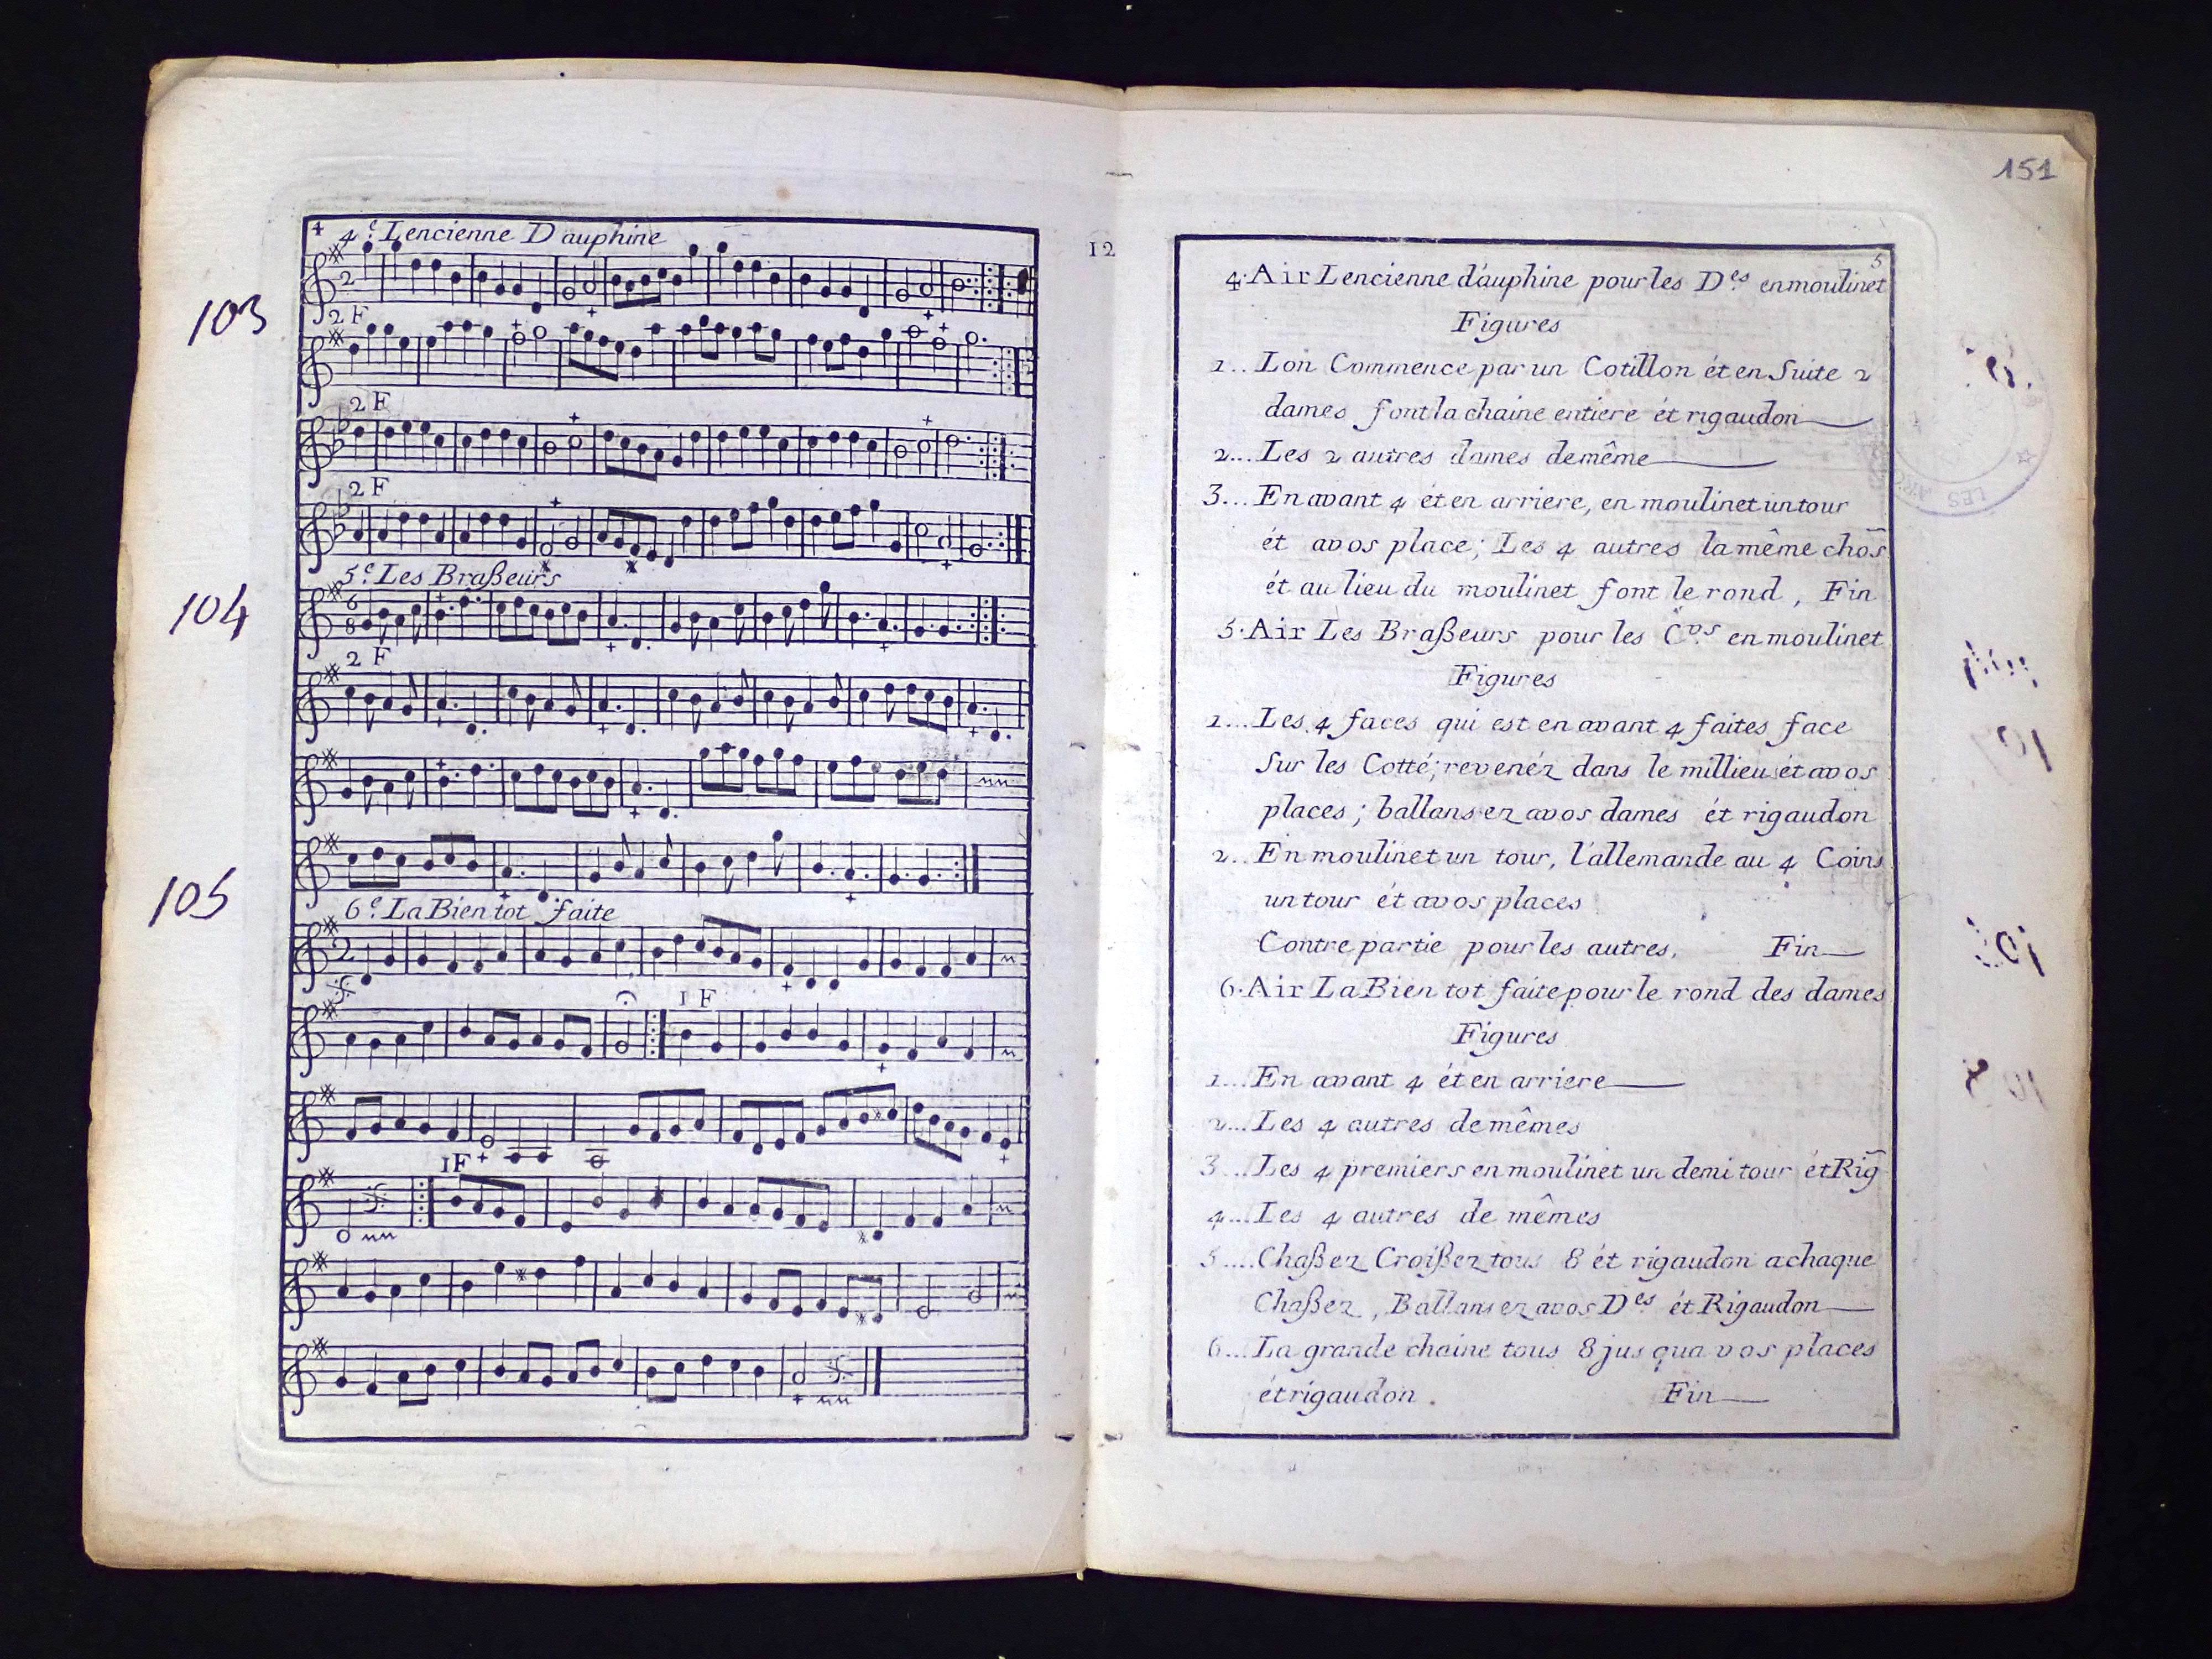 4
4.e Lencienne Dauphine
103
2
2 F
2 F
2 F
5.e Les Braßeurs
104
6
8
2 F
105
6.e La Bien tot faite
2
1 F
1F
12
151
5
4. Air Lencienne d'auphine pour les D.es en moulinet
Figures
1.. Lon Commence par un Cotillon ét en Suite 2
dames font la chaine entiere ét rigaudon
2... Les 2 autres dames de même
3... En avant 4 ét en arriere, en moulinet un tour
ét avos place; Les 4 autres la même chos̃
ét au lieu du moulinet font le rond, Fin
5. Air Les Braßeurs pour les C.vs en moulinet
Figures
1... Les 4 faces qui est en avant 4 faites face
Sur les Cotté; revenéz dans le millieu ét avos
places; ballansez avos dames ét rigaudon
2.. En moulinet un tour, l'allemande au 4 Coins
un tour ét avos places
Contre partie pour les autres. Fin
6. Air La Bien tot faite pour le rond des dames
Figures
1... En avant 4 ét en arriere
2... Les 4 autres de mêmes
3... Les 4 premiers en moulinet un demi tour ét Rig̃
4... Les 4 autres de mêmes
5.... Chaßez Croißez tous 8 ét rigaudon a chaque
Chaßez, Ballansez avos D.es ét Rigaudon
6... La grande chaine tous 8 jus qua vos places
ét rigaudon. Fin